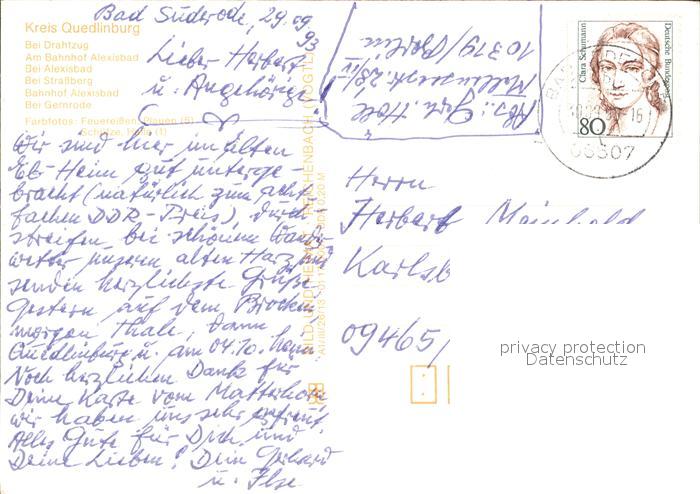 Kreis Quedlinburg
Bei Drahtzug
Am Bahnhof Alexisbad
Bei Alexisbad
Bei Straßberg
Bahnhof Alexisbad
Bei Gernrode
Farbfotos: Feuereißen, Plauen (5)
Schütze, Halle (1)
Bad Suderode, 29.09
93
Lieber Herbert
u. Angehörige
Wir sind hier im alten
Heim gut unterge-
bracht (natürlich zum acht
fachen DDR-Preis), durch
streifen bei schönem Wander
wetter unseren alten Harz und
senden herzlichste Grüße
Gestern auf dem Brocken
morgen Thale, dann
Quedlinburg u. am 04.10. heim
Noch herzlichen Dank für
Deine Karte vom Matterhorn
wir haben uns sehr gefreut
Alles Gute für Dich und
Deine Lieben! Dein Gerhard
u. Ilse
Abs.:
10319/Berlin
Deutsche Bundespost
Clara Schumann
80
16
06507
Herrn
Herbert Meinhold
Karlsb
09465/
privacy protection
Datenschutz